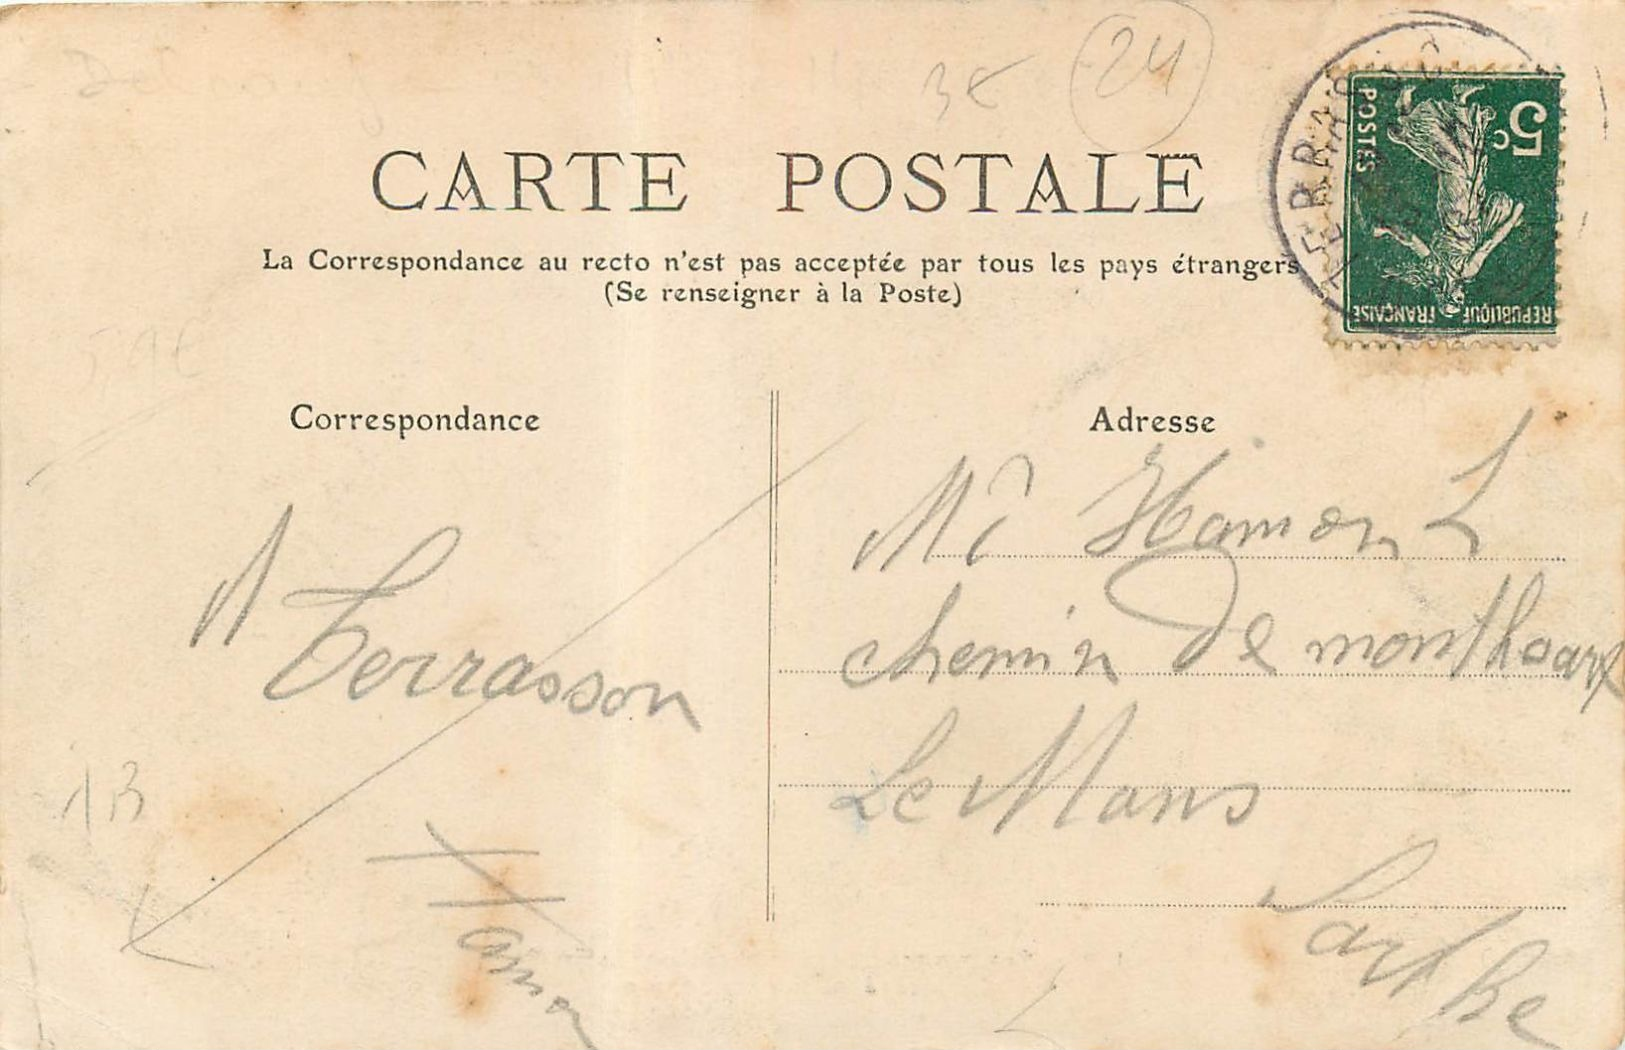 3€ 24
CARTE POSTALE
La Correspondance au recto n'est pas acceptée par tous les pays étrangers
(Se renseigner à la Poste)
5c
POSTES
REPUBLIQUE FRANÇAISE
Correspondance
A Terrasson
13
Hamon
Adresse
Mr Hamon L
chemin de monthéard
Le Mans
Sarthe